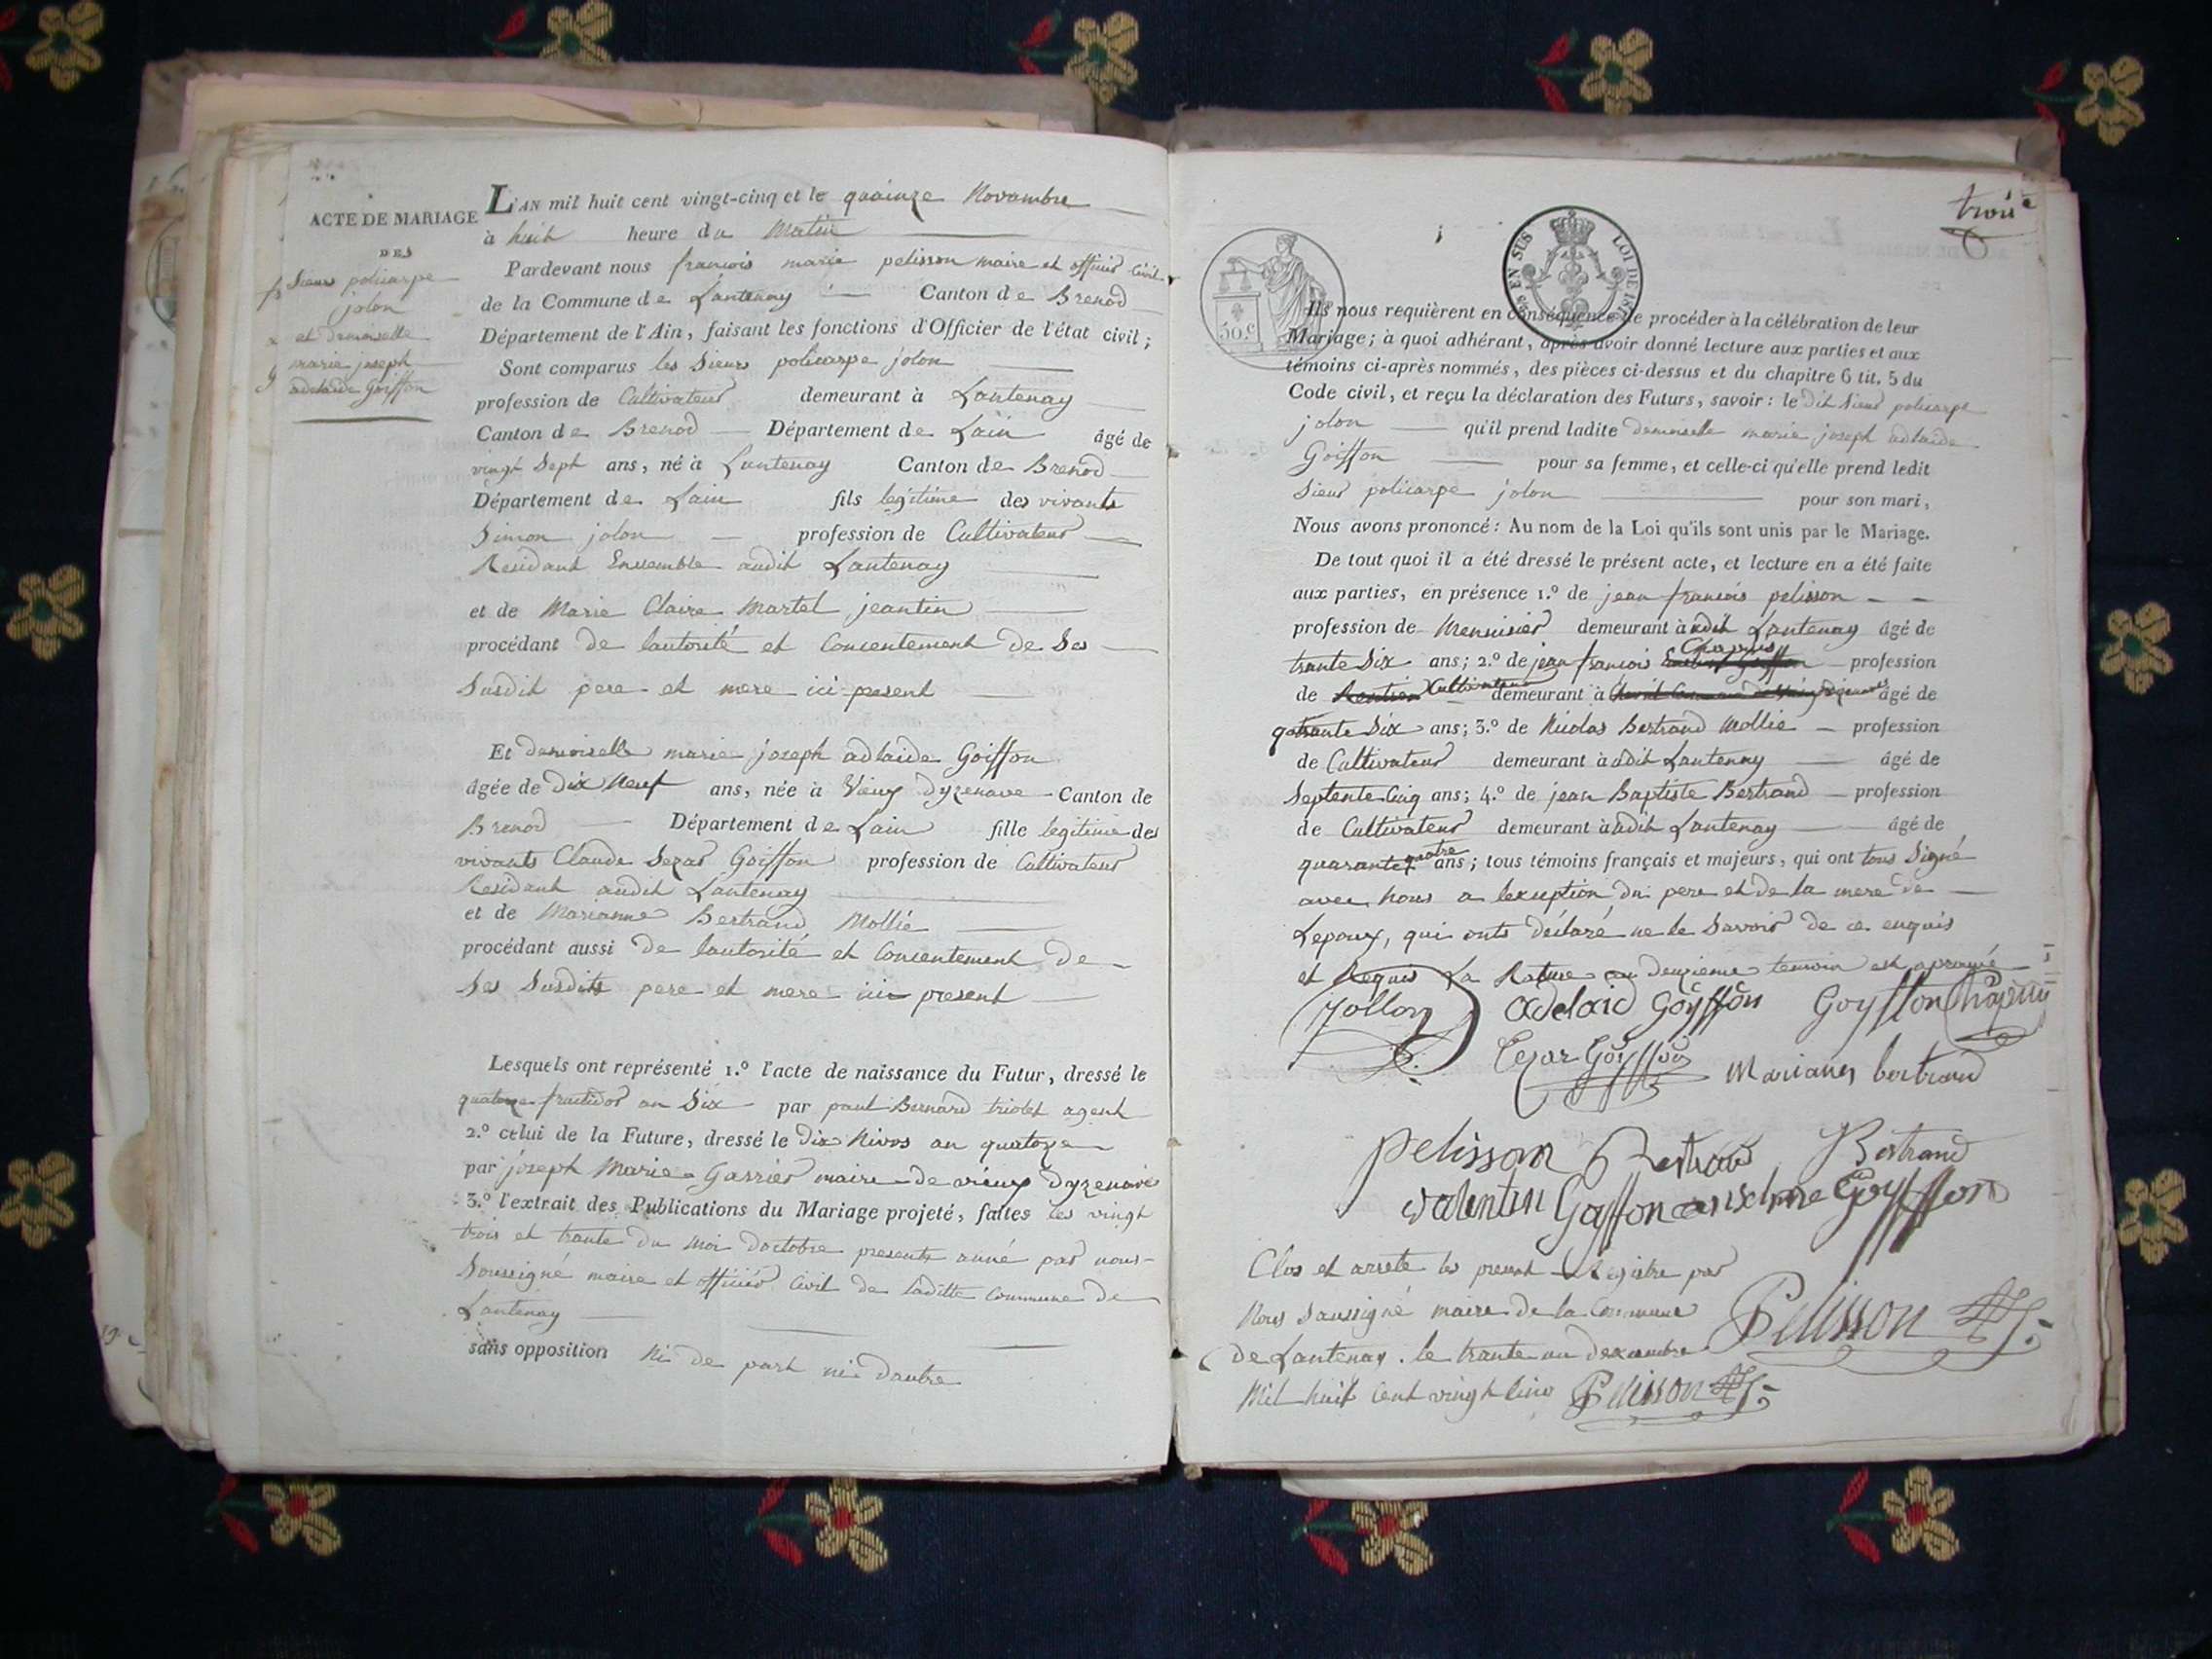 ACTE DE MARIAGE
DES
Sieur policarpe
jolon
et demoiselle
marie joseph
adelaide Goiffon
L'AN mil huit cent vingt-cinq et le quainze Novambre
à huit heure du Matin
Pardevant nous francois marie pelisson maire et officier Civil
de la Commune de Lantenay Canton de Brenod
Département de l'Ain, faisant les fonctions d'Officier de l'état civil;
Sont comparus les Sieurs policarpe jolon
profession de Cultivateur demeurant à Lantenay
Canton de Brenod Département de Lain âgé de
vingt Sept ans, né à Lantenay Canton de Brenod
Département de Lain fils legitime des vivants
Simon jolon profession de Cultivateur
Residant Ensemble audit Lantenay
et de Marie Claire Martel jeantin
procédant de lautorité et Concentement de Ses
Susdit pere et mere ici present
Et demoiselle marie joseph adlaide Goiffon
âgée de dix Neuf ans, née à Vieux dyzenave Canton de
Brenod Département de Lain fille legitime des
vivants Claude Sezar Goiffon profession de Cultivateur
Residant audit Lantenay
et de Marianne Bertrand Mollié
procédant aussi de lautorité et Concentement de
Ses Susdits pere et mere ici present
Lesquels ont représenté 1.º l'acte de naissance du Futur, dressé le
quatorze fructidor an Six par paul Bernard triolet agent
2.º celui de la Future, dressé le dix Nivos an quatorze
par joseph Marie Garrier maire de vieux dyzenave
3.º l'extrait des Publications du Mariage projeté, faites les vingt
trois et trante du moi doctobre presente anné par nous
Soussigné maire et officier Civil de laditte Commune de
Lantenay
sans opposition Ni de part ni dautre
troi e
EN SUS
LOI DE 18
50.c
Ils nous requièrent en conséquence de procéder à la célébration de leur
Mariage; à quoi adhérant, après avoir donné lecture aux parties et aux
témoins ci-après nommés, des pièces ci-dessus et du chapitre 6 tit. 5 du
Code civil, et reçu la déclaration des Futurs, savoir: le dit Sieur policarpe
jolon qu'il prend ladite demoiselle marie joseph adlaide
Goiffon pour sa femme, et celle-ci qu'elle prend ledit
Sieur policarpe jolon pour son mari,
Nous avons prononcé: Au nom de la Loi qu'ils sont unis par le Mariage.
De tout quoi il a été dressé le présent acte, et lecture en a été faite
aux parties, en présence 1.º de jean francois pelisson
profession de Menuisier demeurant à audit Lantenay âgé de
trante Six ans; 2.º de jean francois Chapuis profession
de Rentier Cultivateur demeurant à âgé de
qatrante Six ans; 3.º de Nicolas Bertrand Mollie profession
de Cultivateur demeurant à adit Lantenay âgé de
Septente Cinq ans; 4.º de jean Baptiste Bertrand profession
de Cultivateur demeurant à audit Lantenay âgé de
quarante quatre ans; tous témoins français et majeurs, qui ont tous Signé
avec nous a lexeption du pere et de la mere de
Lepoux, qui onts déclaré ne le Savoir de ce enquis
et Requis La Rature au deuxieme temoin est aprouvé
Jollon adelaid Goÿffon Goyffon Chapuis
Cezar Goÿffon Marianes bertrand
pelisson Bertrand Bertrand
valentin Goÿffon anselme Goyffon
Clos et arreté le present Registre par
Nous Soussigné maire de la Commune
de Lantenay . le trante un dexembre Pelisson
Mil huit Cent vingt Cinq Pelisson